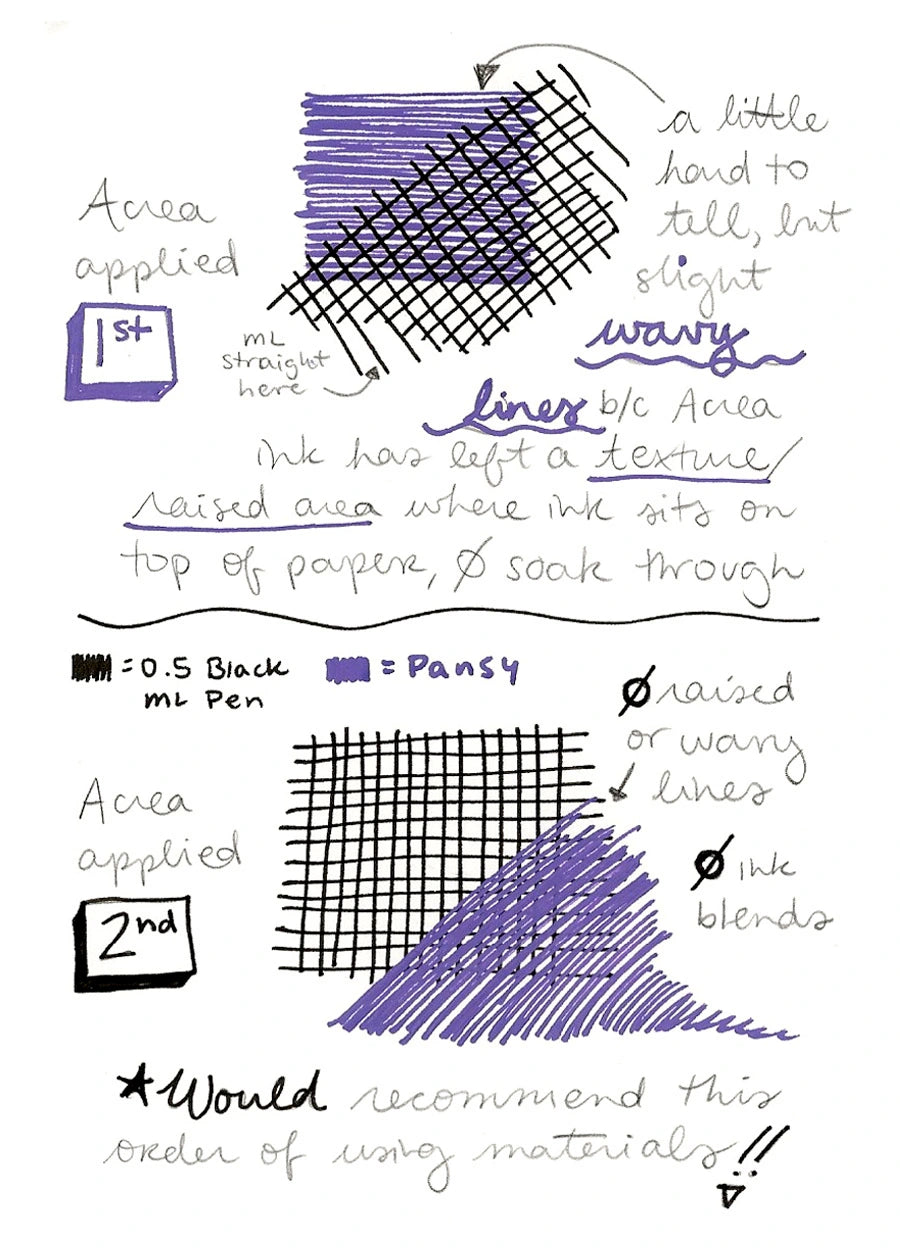 a little
hard to
tell, but
slight
wavy
lines b/c Acrea
ink has left a texture/
raised area where ink sits on
top of paper, Ø soak through
Acrea
applied
1st
mL
straight
here
= 0.5 Black
mL Pen
= Pansy
Ø raised
or wavy
lines
Ø ink
blends
Acrea
applied
2nd
★Would recommend this
order of using materials!!